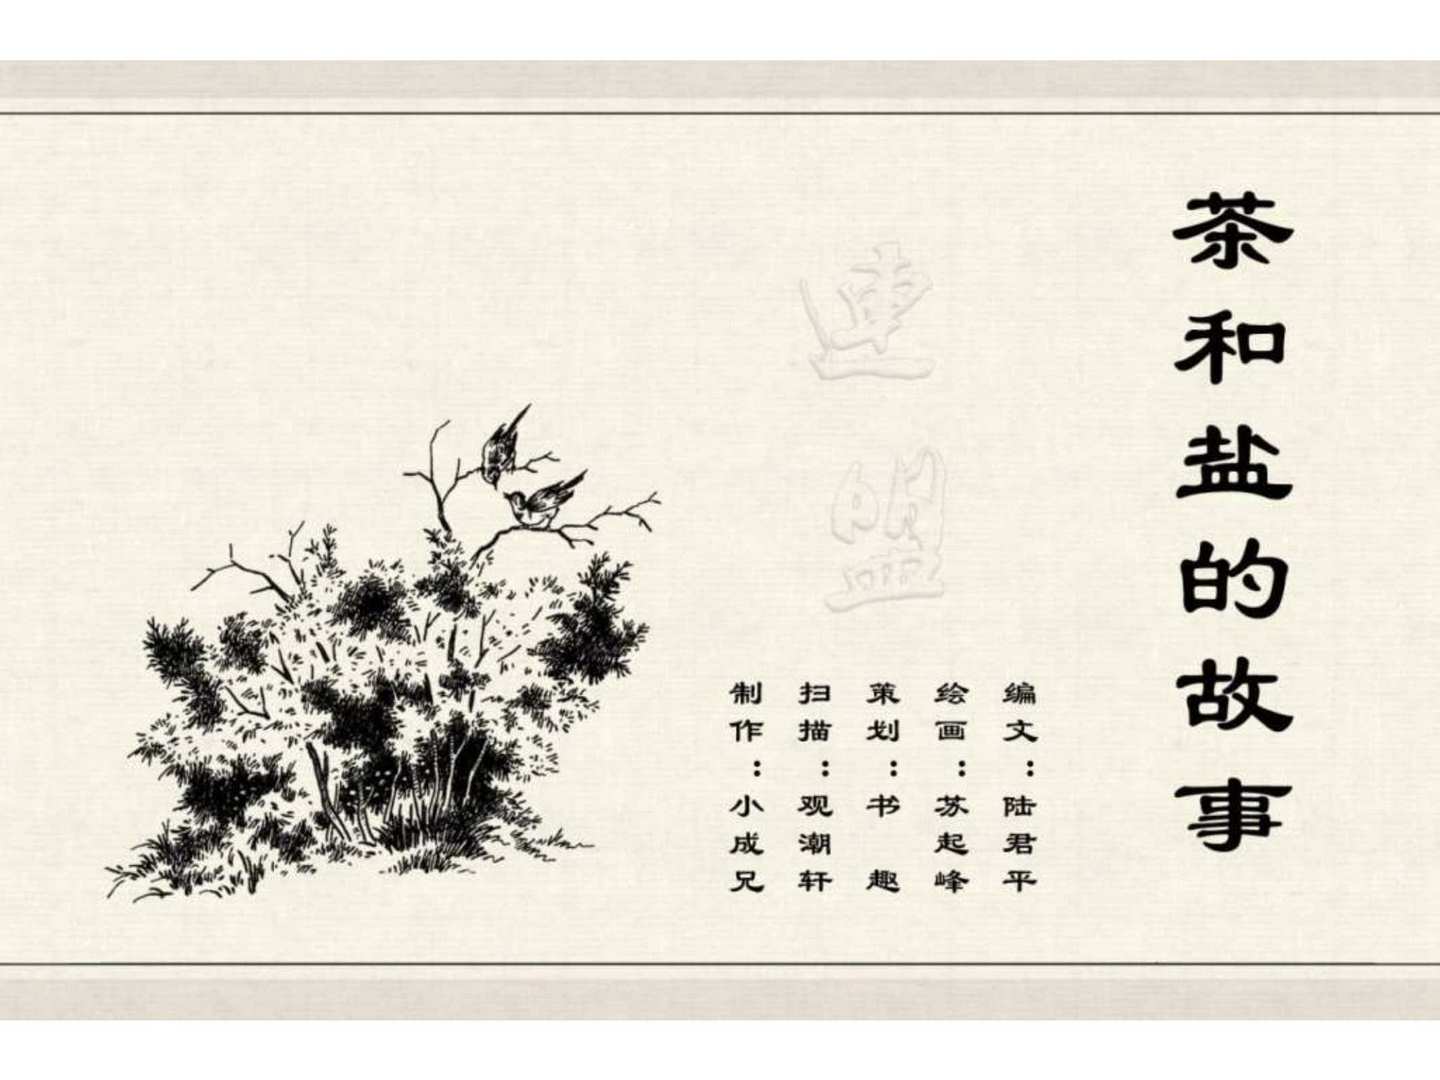 茶和盐的故事
编文：陆君平
绘画：苏起峰
策划：书趣
扫描：观潮轩
制作：小成兄
連盟